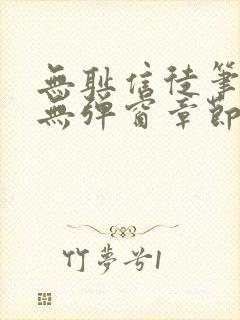 無耻信徒筆
無彈窗章節
竹夢兮1